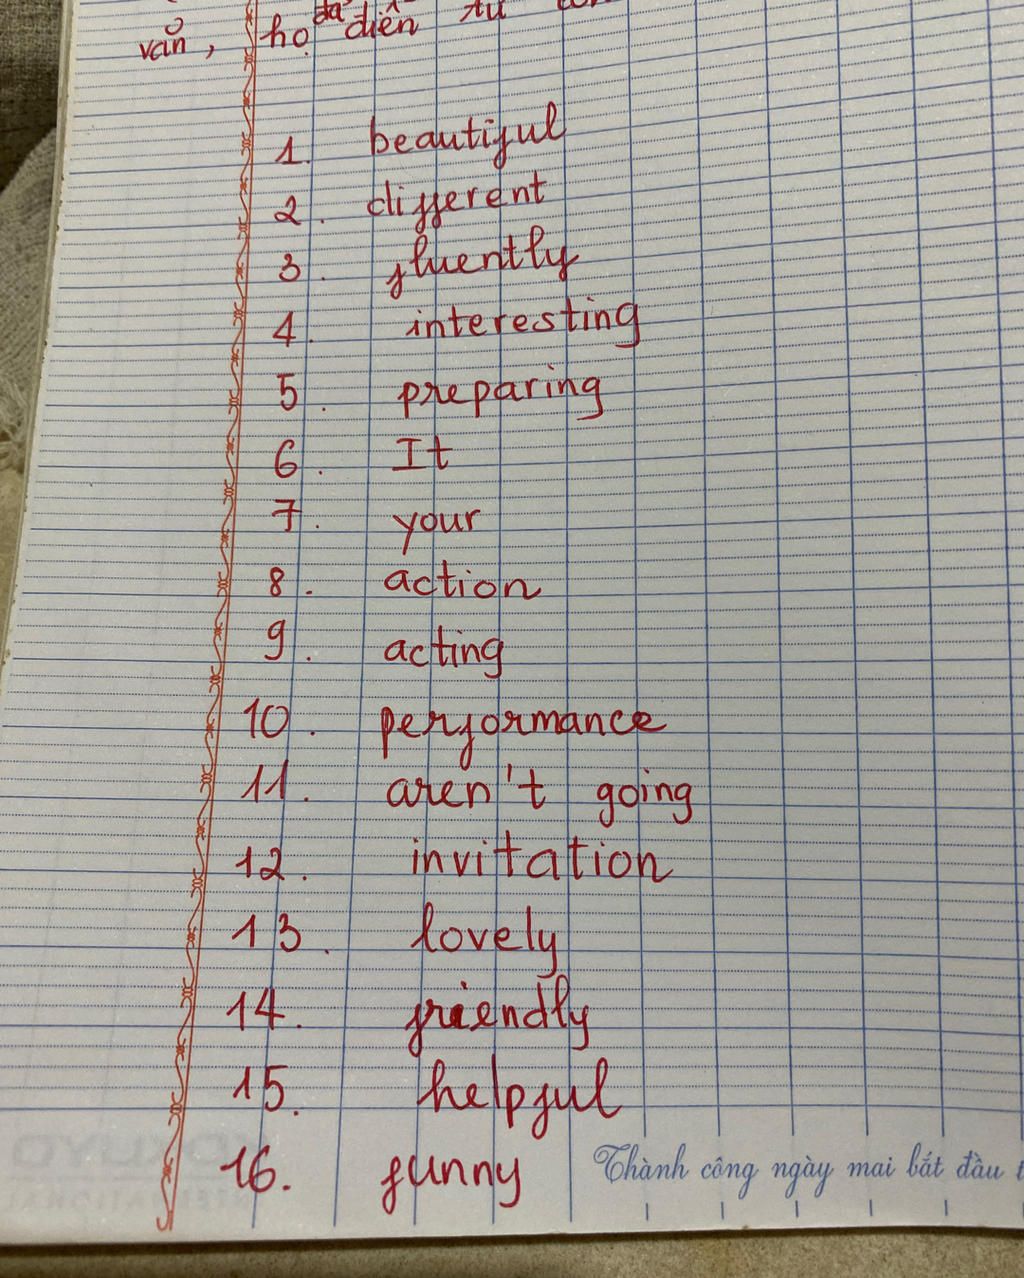 vản, họ đã diễn từ
1. beautiful
2. different
3. fluently
4. interesting
5. preparing
6. It
7. your
8. action
9. acting
10. performance
11. aren't going
12. invitation
13. lovely
14. friendly
15. helpful
16. funny
Thành công ngày mai bắt đầu